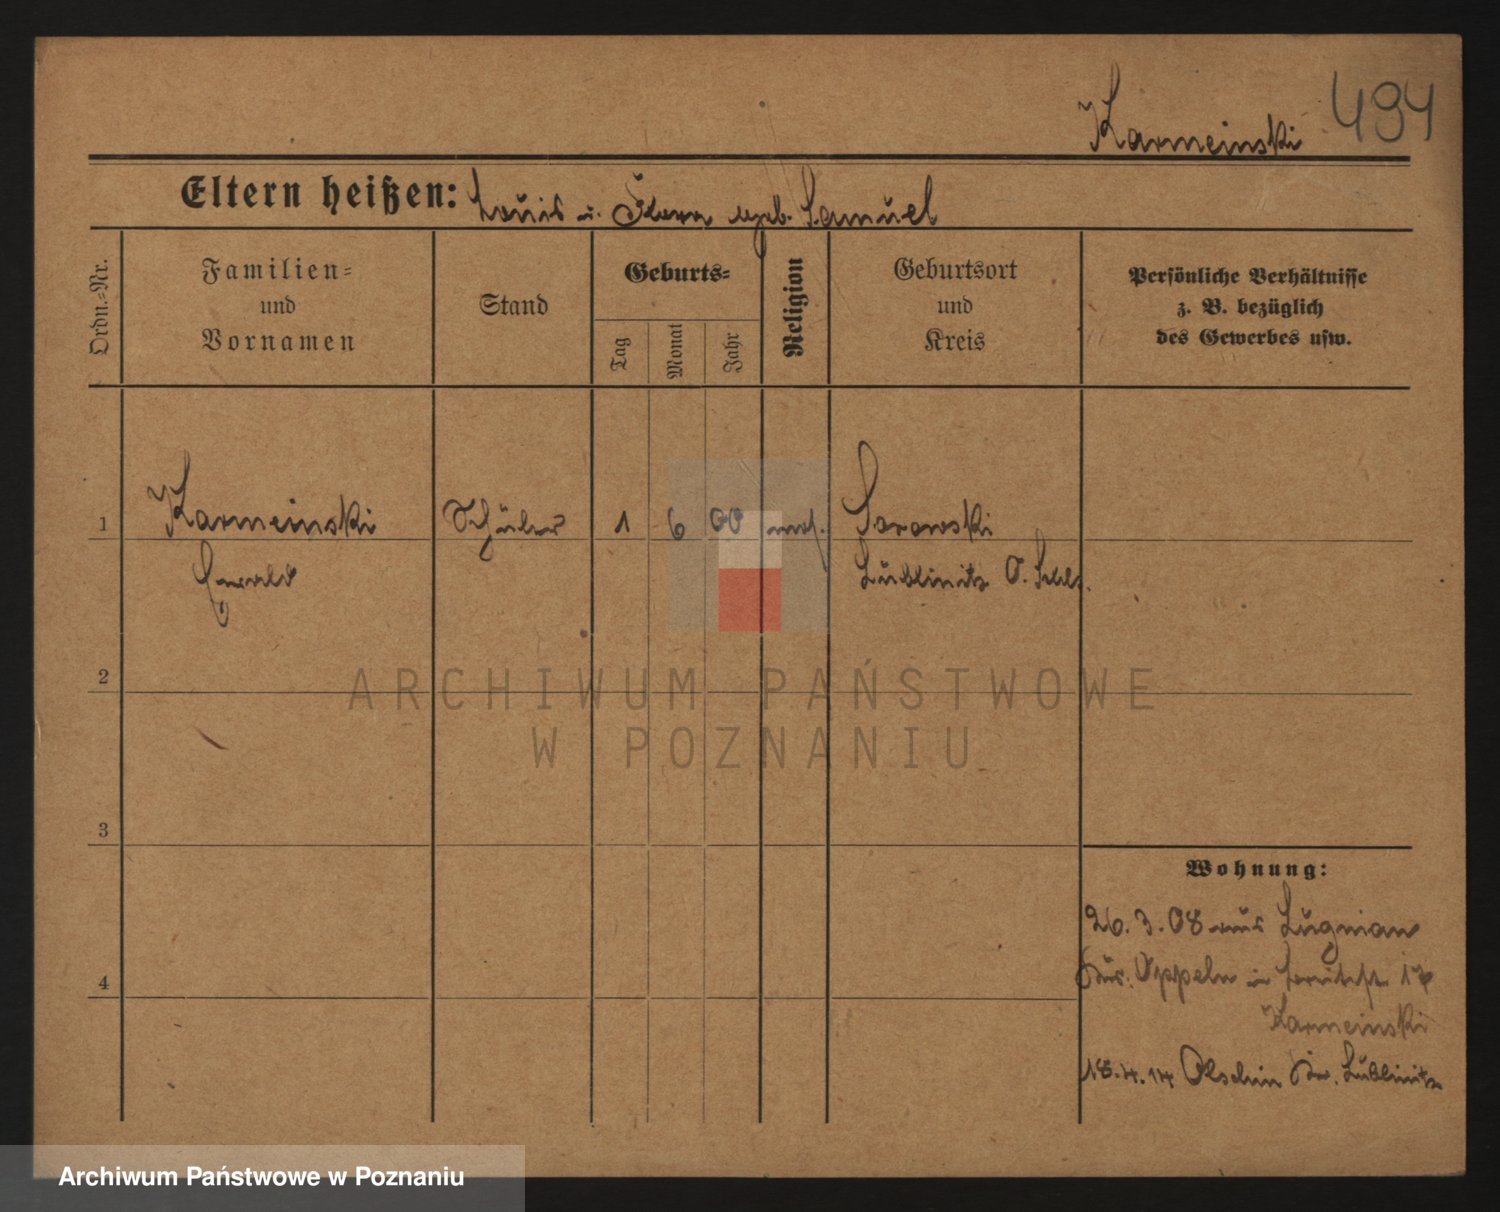 Karmeinski 494
Eltern heißen: Louis u. Flora geb. Samuel
Ordn.-Nr.
Familien-
und
Vornamen
Stand
Geburts-
Tag
Monat
Jahr
Religion
Geburtsort
und
Kreis
Persönliche Verhältnisse
z. B. bezüglich
des Gewerbes usw.
1 Karmeinski Schüler 1 6 00 mos. Sorowski
Ewald Lublinitz O. Schles.
2
ARCHIWUM PAŃSTWOWE
W POZNANIU
3
Wohnung:
26. 3. 08 aus Lugnian
4
Kr. Oppeln in 17
Karmeinski
18.4.14 Olschin Kr. Lublinitz
Archiwum Państwowe w Poznaniu